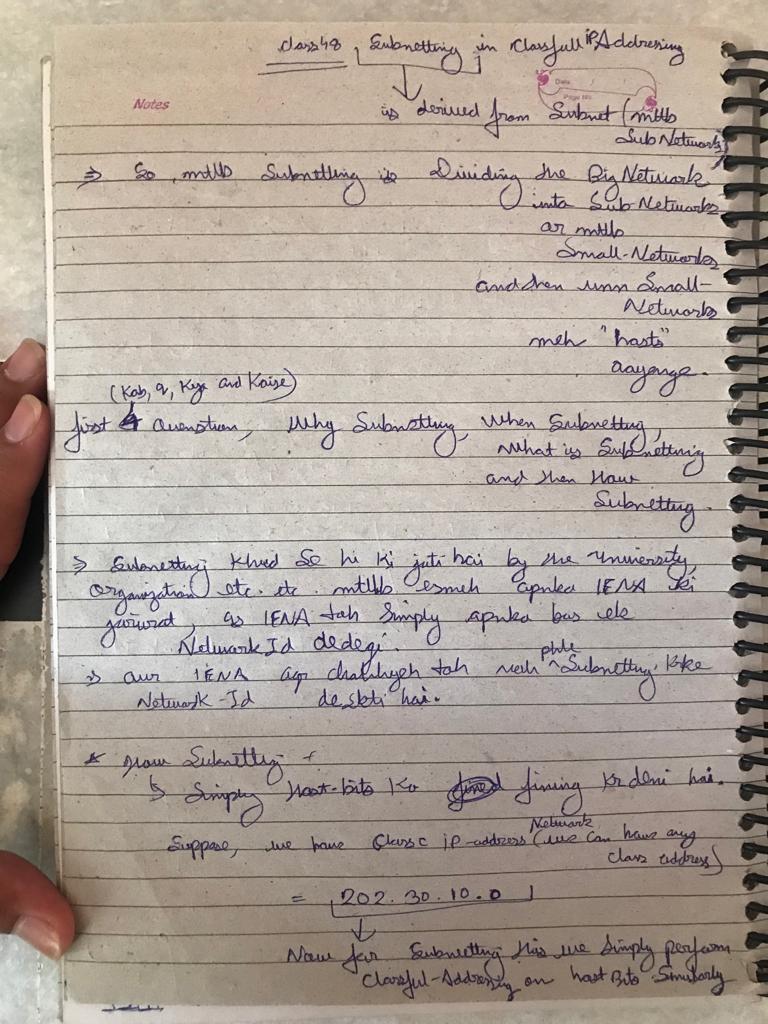 class 48, Subnetting in Classfull IP Addressing
Date
Page No.
Notes
is derived from Subnet (mtlb
Sub Networks)
⇒ So, mtlb Subnetting is Dividing the Big Network
into Sub-Networks
or mtlb
Small-Networks
and then unn Small-
Networks
meh "hosts"
aayenge.
(Kab, q, Kya and Kaise)
first 4 Question, Why Subnetting, When Subnetting,
What is Subnetting
and then How
Subnetting.
⇒ Subnetting khud se hi ki jati hai by the University,
organization etc. etc. mtlb esmeh apnka IENA ki
jarurat, qs IENA toh Simply apnka bas ek
Network Id dedegi.
phle
⇒ aur IENA agr chahhyeh toh Subnetting krke
Network-Id de skti hai.
* How Subnetting
↳ Simply Host-bits ko fining kr deni hai.
Network
Suppose, we have Class C ip-address (we can have any
class address)
= 202.30.10.0
Now for Subnetting this we simply perform
Classful-Addressing on host Bits Similarly